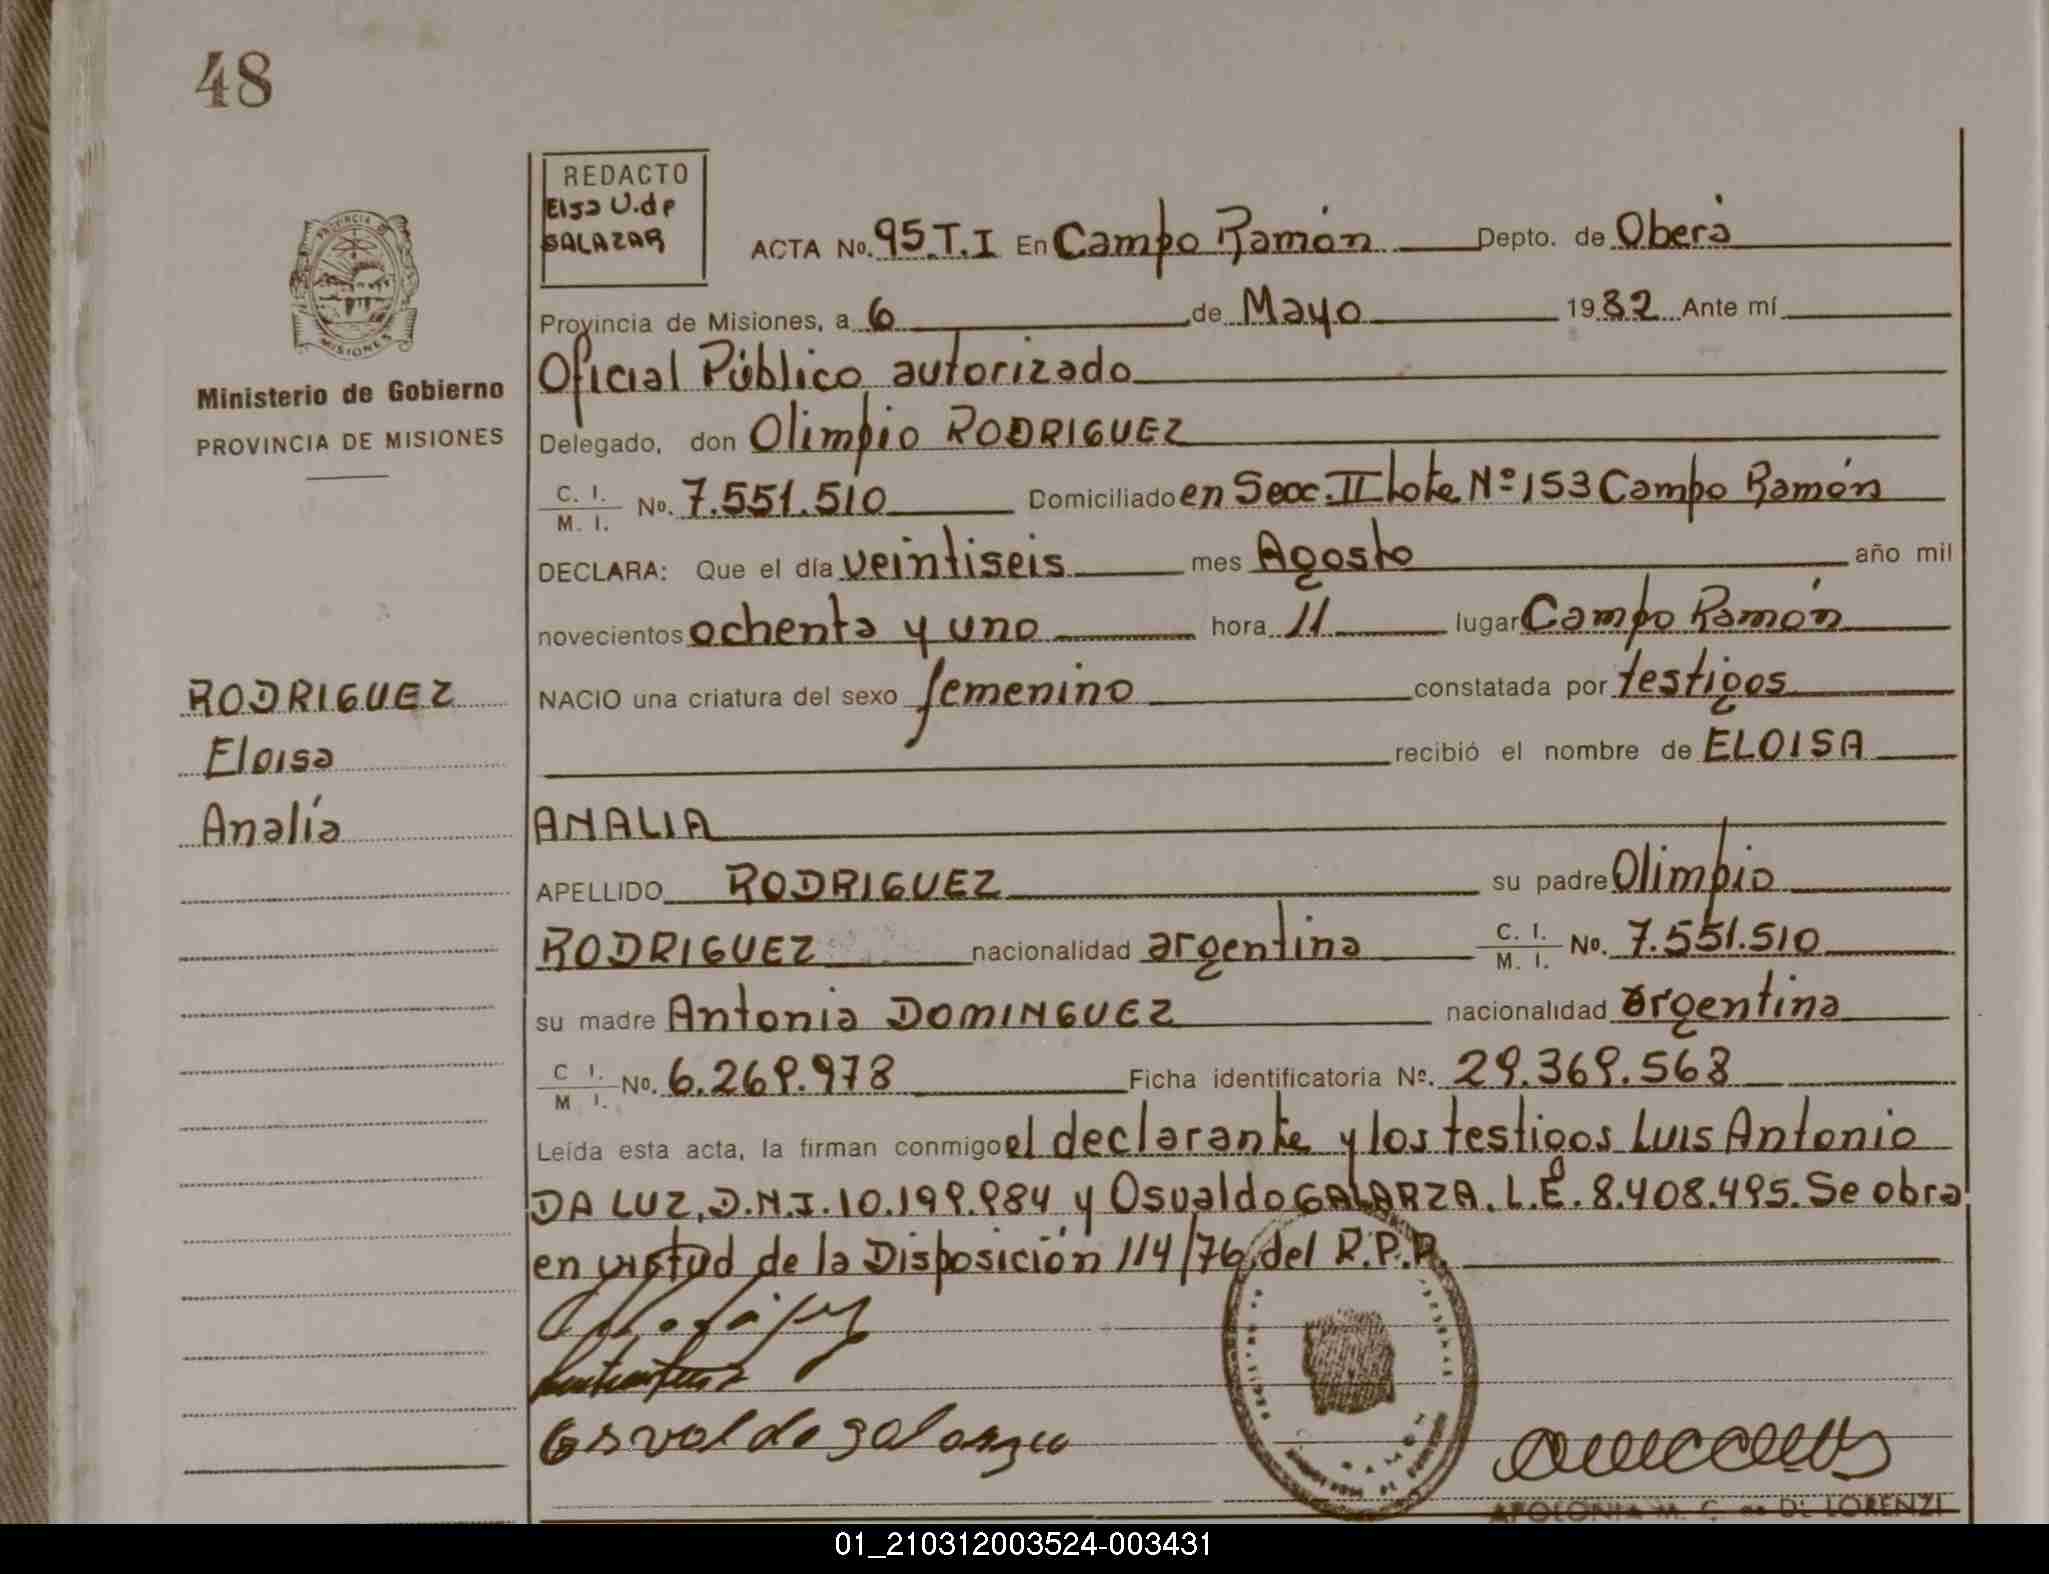 48
REDACTO
Elsa U. de
SALAZAR
ACTA No. 95.T.I En Campo Ramón Depto. de Oberá
Provincia de Misiones, a 6 de Mayo 1982 Ante mí
Oficial Público autorizado
Delegado, don Olimpio RODRIGUEZ
C. I.
M. I.
No. 7.551.510 Domiciliado en Secc. II Lote Nº 153 Campo Ramón
DECLARA: Que el día veintiseis mes Agosto año mil
novecientos ochenta y uno hora 11 lugar Campo Ramón
NACIO una criatura del sexo femenino constatada por testigos
recibió el nombre de ELOISA
ANALIA
APELLIDO RODRIGUEZ su padre Olimpio
RODRIGUEZ nacionalidad argentina C. I. M. I. No. 7.551.510
su madre Antonia DOMINGUEZ nacionalidad argentina
C I. M I. No. 6.269.978 Ficha identificatoria Nº. 29.369.568
Leída esta acta, la firman conmigo el declarante y los testigos Luis Antonio
DA LUZ, D.N.I. 10.199.984 y Osvaldo GALARZA. L.E. 8.408.495. Se obra
en virtud de la Disposición 114/76 del R.P.P.
Osvaldo galarza
APOLONIA M. C. de DI LORENZI
PROVINCIA
MISIONES
Ministerio de Gobierno
PROVINCIA DE MISIONES
RODRIGUEZ
Eloisa
Analía
01_210312003524-003431